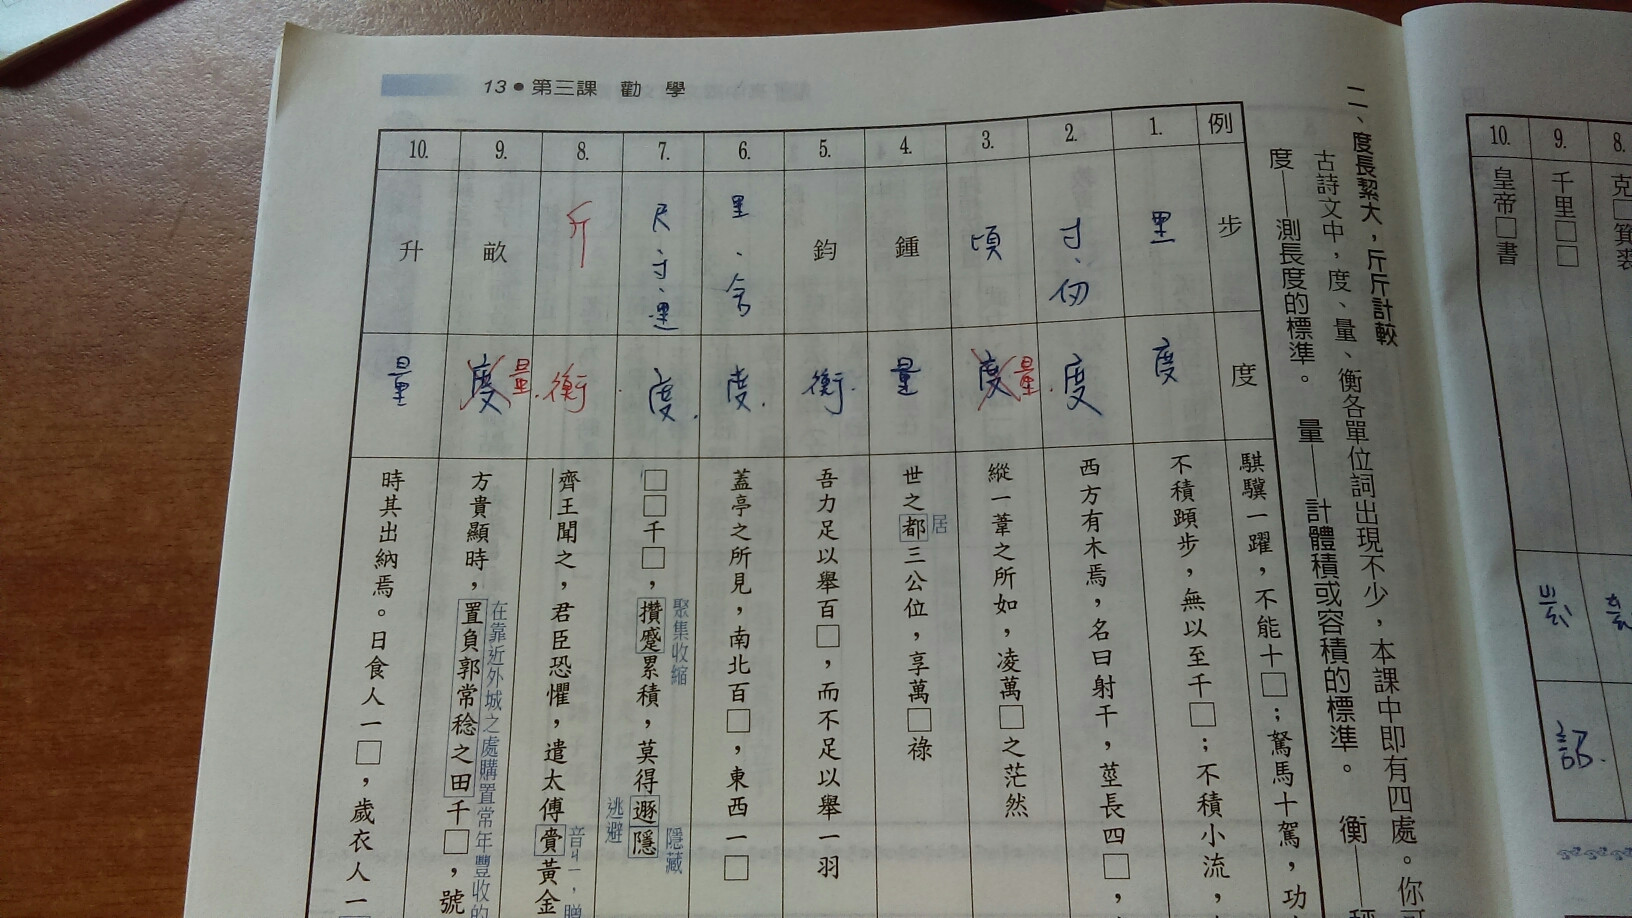 13●第三課 勸 學
二、度長絜大，斤斤計較
古詩文中，度、量、衡各單位詞出現不少，本課中即有四處。你可
度——測長度的標準。 量——計體積或容積的標準。 衡——
例
步
度
騏驥一躍，不能十□；駑馬十駕，功
1.
里
度
不積蹞步，無以至千□；不積小流，
2.
寸、仞
度
西方有木焉，名曰射干，莖長四□，
3.
頃
度 量
縱一葦之所如，凌萬□之茫然
4.
鍾
量
世之都三公位，享萬□祿
居
5.
鈞
衡
吾力足以舉百□，而不足以舉一羽
6.
里、舍
度
蓋亭之所見，南北百□，東西一□
7.
尺、寸、里
度
□□千□，攢蹙累積，莫得遯隱
聚集收縮
逃避
隱藏
8.
斤
衡
齊王聞之，君臣恐懼，遣太傅齎黃金
音ㄐㄧ，贈
9.
畝
度 量
方貴顯時，置負郭常稔之田千□，號
在靠近外城之處購置常年豐收的
10.
升
量
時其出納焉。日食人一□，歲衣人一
8.
克□箕裘
9.
千里□□
10.
皇帝□書